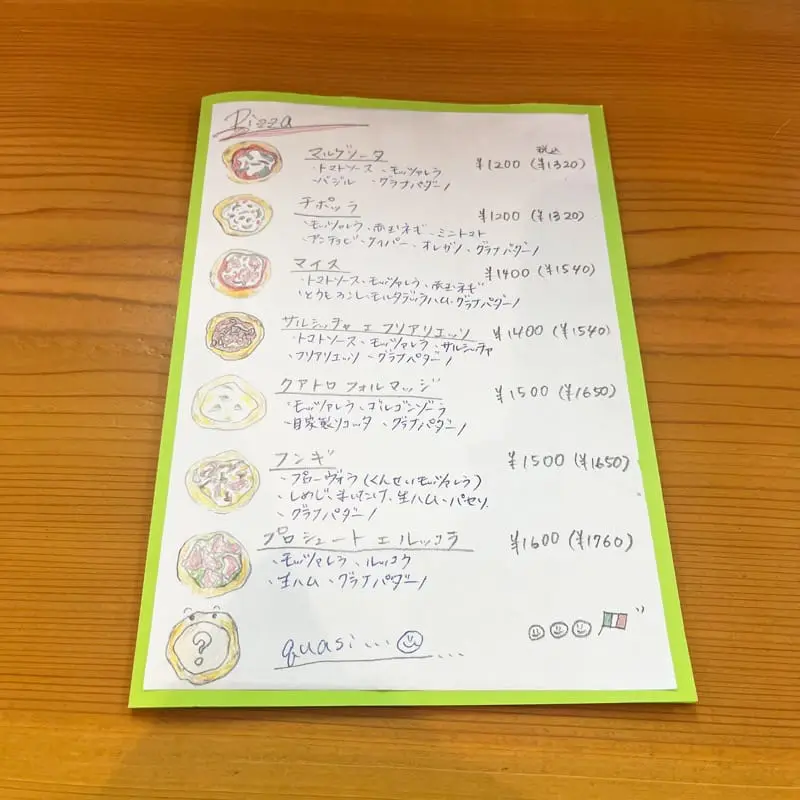 Pizza
税込
マルゲリータ ¥1200 (¥1320)
・トマトソース ・モッツァレラ
・バジル ・グラナパダーノ
チポッラ ¥1200 (¥1320)
・モッツァレラ、赤玉ネギ・ミニトマト
・アンチョビ・ケイパー、オレガノ、グラナパダーノ
マイス ¥1400 (¥1540)
・トマトソース、モッツァレラ、赤玉ネギ
・とうもろこし、モルタデッラハム、グラナパダーノ
サルシッチャ エ フリアリエッリ ¥1400 (¥1540)
・トマトソース・モッツァレラ、サルシッチャ
・フリアリエッリ ・グラナパダーノ
クアトロ フォルマッジ ¥1500 (¥1650)
・モッツァレラ、ゴルゴンゾーラ
・自家製リコッタ、グラナパダーノ
フンギ ¥1500 (¥1650)
・プローヴォラ(くんせいモッツァレラ)
・しめじ、まいたけ、生ハム・パセリ
・グラナパダーノ
プロシュート エ ルッコラ ¥1600 (¥1760)
・モッツァレラ、ルッコラ
・生ハム、グラナパダーノ
?
quasi...